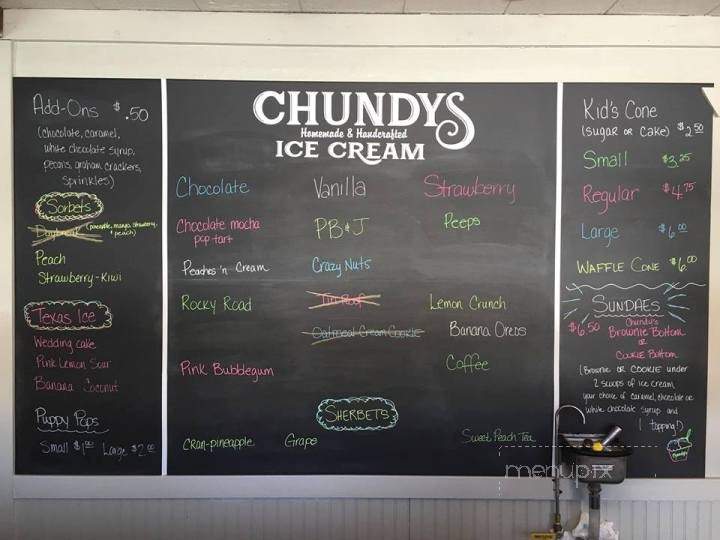 Add-Ons $.50
(chocolate, caramel,
white chocolate syrup,
pecans, graham crackers,
sprinkles)
Sorbets
(pineapple, mango, strawberry,
+ peach)
Peach
Strawberry-Kiwi
Texas Ice
Wedding cake
Pink Lemon Sour
Banana Coconut
Puppy Pops
Small $1.00 Large $2.00
CHUNDYS
Homemade & Handcrafted
ICE CREAM
Chocolate Vanilla Strawberry
Chocolate mocha
pop tart
PB&J Peeps
Peaches 'n Cream Crazy Nuts
Rocky Road Tin Roof Lemon Crunch
Oatmeal Cream Cookie Banana Oreos
Pink Bubblegum Coffee
SHERBETS
Cran-pineapple Grape Sweet Peach Tea
Kid's Cone
(sugar or cake) $2.50
Small $3.25
Regular $4.75
Large $6.00
WAFFLE CONE $6.00
SUNDAES
$6.50 Chundy's
Brownie Bottom
OR
Cookie Bottom
(Brownie or COOKIE under
2 scoops of ice cream,
your choice of caramel, chocolate or
white chocolate syrup and
1 topping!)
menupix